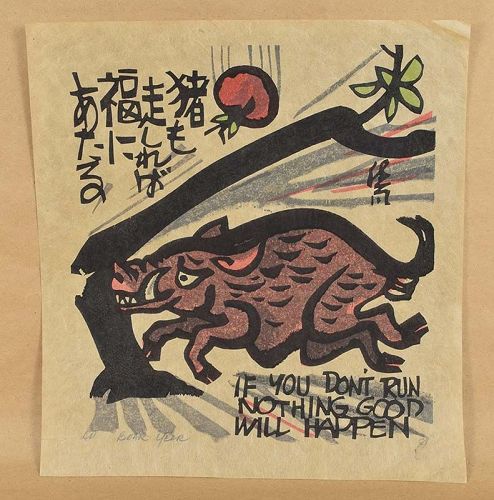 猪も
走しれば
福に
あたる
IF YOU DON'T RUN
NOTHING GOOD
WILL HAPPEN
BOAR YEAR